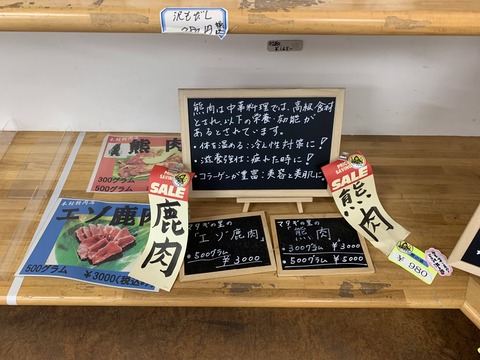 沢もだし
熊肉は中華料理では、高級食材
とされ、以下の栄養・効能が
あるとされています。
・体を温める:冷え性対策に!
・滋養強壮:疲れた時に!
・コラーゲンが豊富:美容と美肌に!
熊肉
300グラム
500グラム
エゾ鹿肉
500グラム
¥3000(税込)
SALE
鹿肉
SALE
熊肉
マタギの里の
「エゾ鹿肉」
・500グラム
¥3000
マタギの里の
「熊肉」
・300グラム ¥3000
・500グラム ¥5000
¥980